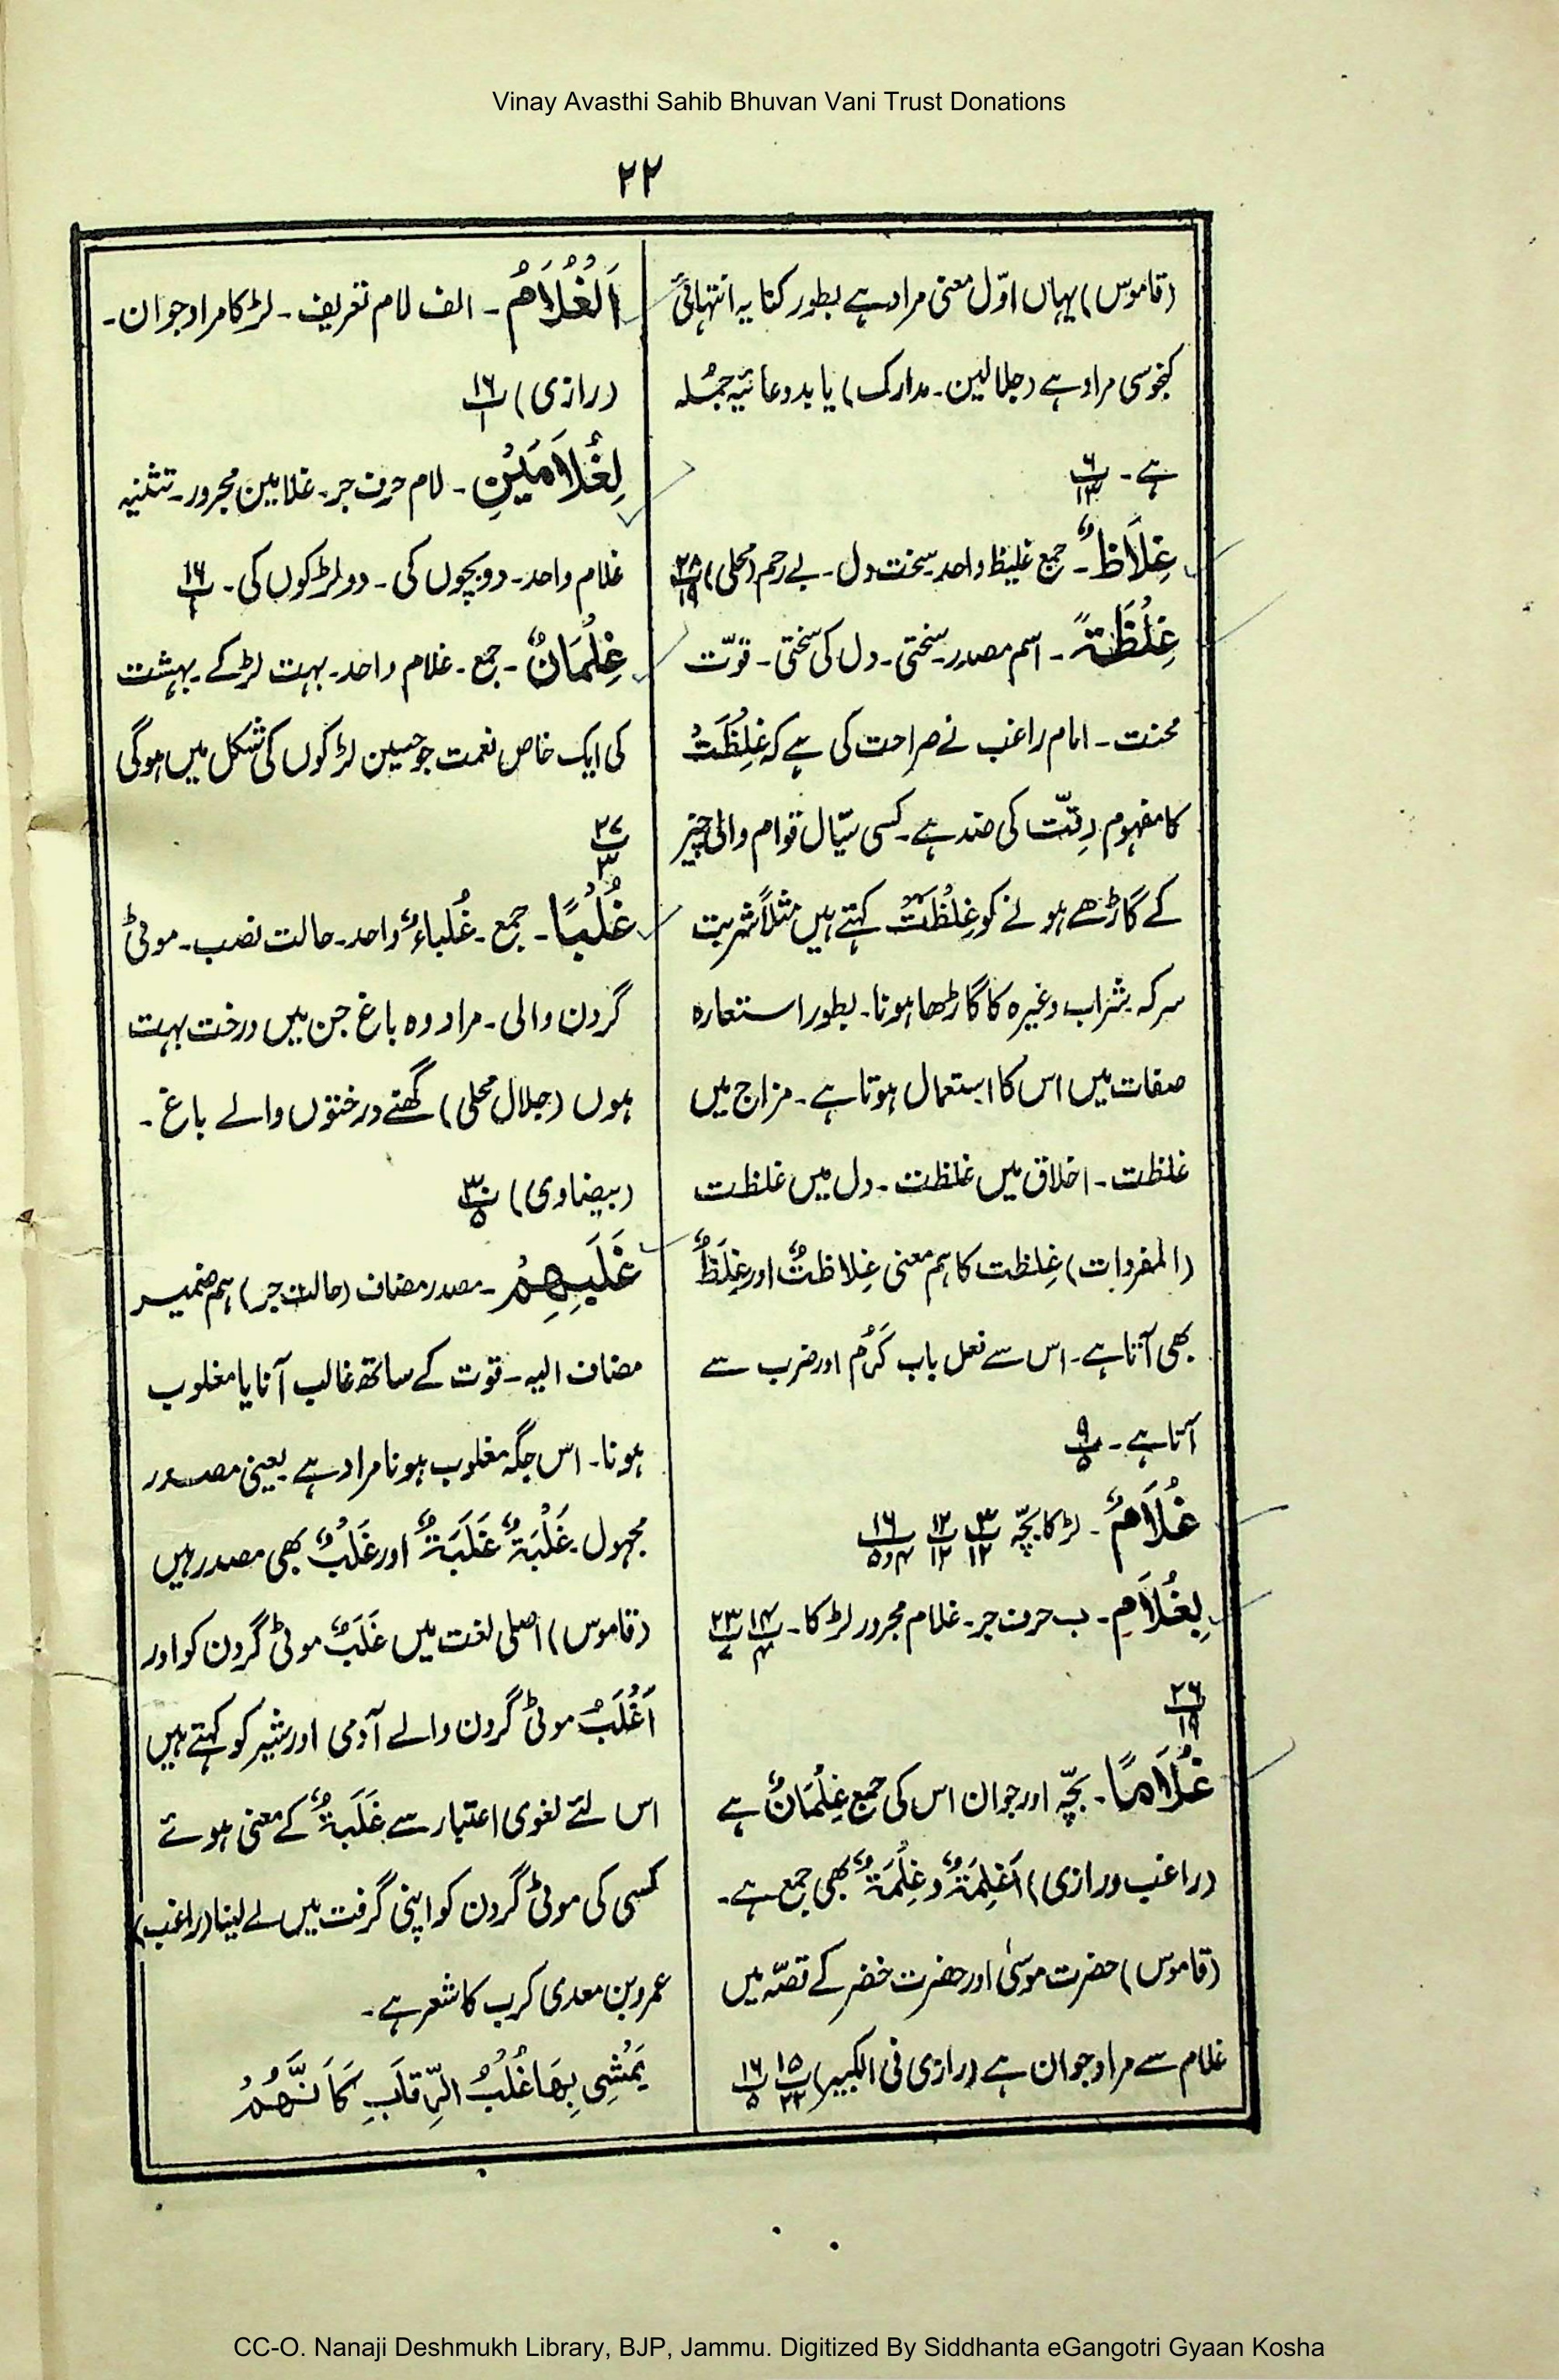 Vinay Avasthi Sahib Bhuvan Vani Trust Donations
۲۲
(قاموس) یہاں اوّل معنی مراد ہے بطور کنایہ انتہائی
کنجوسی مراد ہے (جلالین۔ مدارک) یا بد دعائیہ جملہ
ہے۔ پ۶ ۱۳
غِلَاظٌ۔ جمع غلیظ واحد۔ سخت دل۔ بے رحم (محلی) پ۲۸ ۱۹
غِلْظَۃً۔ اسم مصدر۔ سختی۔ دل کی سختی۔ قوّت
محنت۔ امام راغب نے صراحت کی ہے کہ غِلْظَتُ
کا مفہوم رِقّت کی ضد ہے۔ کسی سیّال قوام والی چیز
کے گاڑھے ہونے کو غِلْظَتٌ کہتے ہیں مثلاً شربت
سرکہ۔ شراب وغیرہ کا گاڑھا ہونا۔ بطور استعارہ
صفات میں اس کا استعمال ہوتا ہے۔ مزاج میں
غلظت۔ اخلاق میں غلظت۔ دل میں غلظت
(المفردات) غِلظت کا ہم معنی غِلاظتٌ اور غِلَظٌ
بھی آتا ہے۔ اس سے فعل باب کَرُم اور ضرب سے
آتا ہے۔ پ۹ ۵
غُلَامٌ۔ لڑکا بچّہ پ۳ ۱۲ پ۱۲ ۱۲ پ۱۶ ۴و۵
بِغُلَامٍ۔ ب حرف جر۔ غلام مجرور لڑکا۔ پ۱۴ ۴ پ۲۳ ۷
پ۲۶ ۱۹
غُلَامًا۔ بچّہ اور جوان اس کی جمع غِلْمَانٌ ہے
(راغب ورازی) اَغْلِمَۃٌ و غِلْمَۃٌ بھی جمع ہے۔
(قاموس) حضرت موسیٰ اور حضرت خضر کے قصّہ میں
غلام سے مراد جوان ہے (رازی فی الکبیر) پ۱۵ ۲۲ پ۱۶ ۵
اَلْغُلَامُ۔ الف لام تعریف۔ لڑکا مراد جوان۔
(رازی) پ۱۶ ۱
لِغُلَامَیْنِ۔ لام حرف جر۔ غلامین مجرور۔ تثنیہ
غلام واحد۔ دو بچوں کی۔ دو لڑکوں کی۔ پ۱۶ ۱
غِلْمَانٌ۔ جمع۔ غلام واحد۔ بہت لڑکے۔ بہشت
کی ایک خاص نعمت جو حسین لڑکوں کی شکل میں ہوگی
پ۲۷ ۳
غُلْبًا۔ جمع۔ غُلباءُ واحد۔ حالت نصب۔ موٹی
گردن والی۔ مراد وہ باغ جن میں درخت بہت
ہوں (جلال محلی) گھنے درختوں والے باغ۔
(بیضاوی) پ۳۰ ۵
غَلَبِھِمْ۔ مصدر مضاف (حالت جر) ہم ضمیر
مضاف الیہ۔ قوت کے ساتھ غالب آنا یا مغلوب
ہونا۔ اس جگہ مغلوب ہونا مراد ہے یعنی مصدر
مجہول۔ غَلْبَۃٌ غَلَبَۃٌ اور غَلْبٌ بھی مصدر ہیں
(قاموس) اصلی لغت میں غَلَبٌ موٹی گردن کو اور
اَغْلَبُ موٹی گردن والے آدمی اور شیر کو کہتے ہیں
اس لئے لغوی اعتبار سے غَلَبَۃٌ کے معنی ہوئے
کسی کی موٹی گردن کو اپنی گرفت میں لے لینا (راغب)
عمرو بن معدی کرب کا شعر ہے۔
یَمْشِی بِھَا غُلْبُ الرِّقَابِ کَاَنَّھُمْ
CC-O. Nanaji Deshmukh Library, BJP, Jammu. Digitized By Siddhanta eGangotri Gyaan Kosha